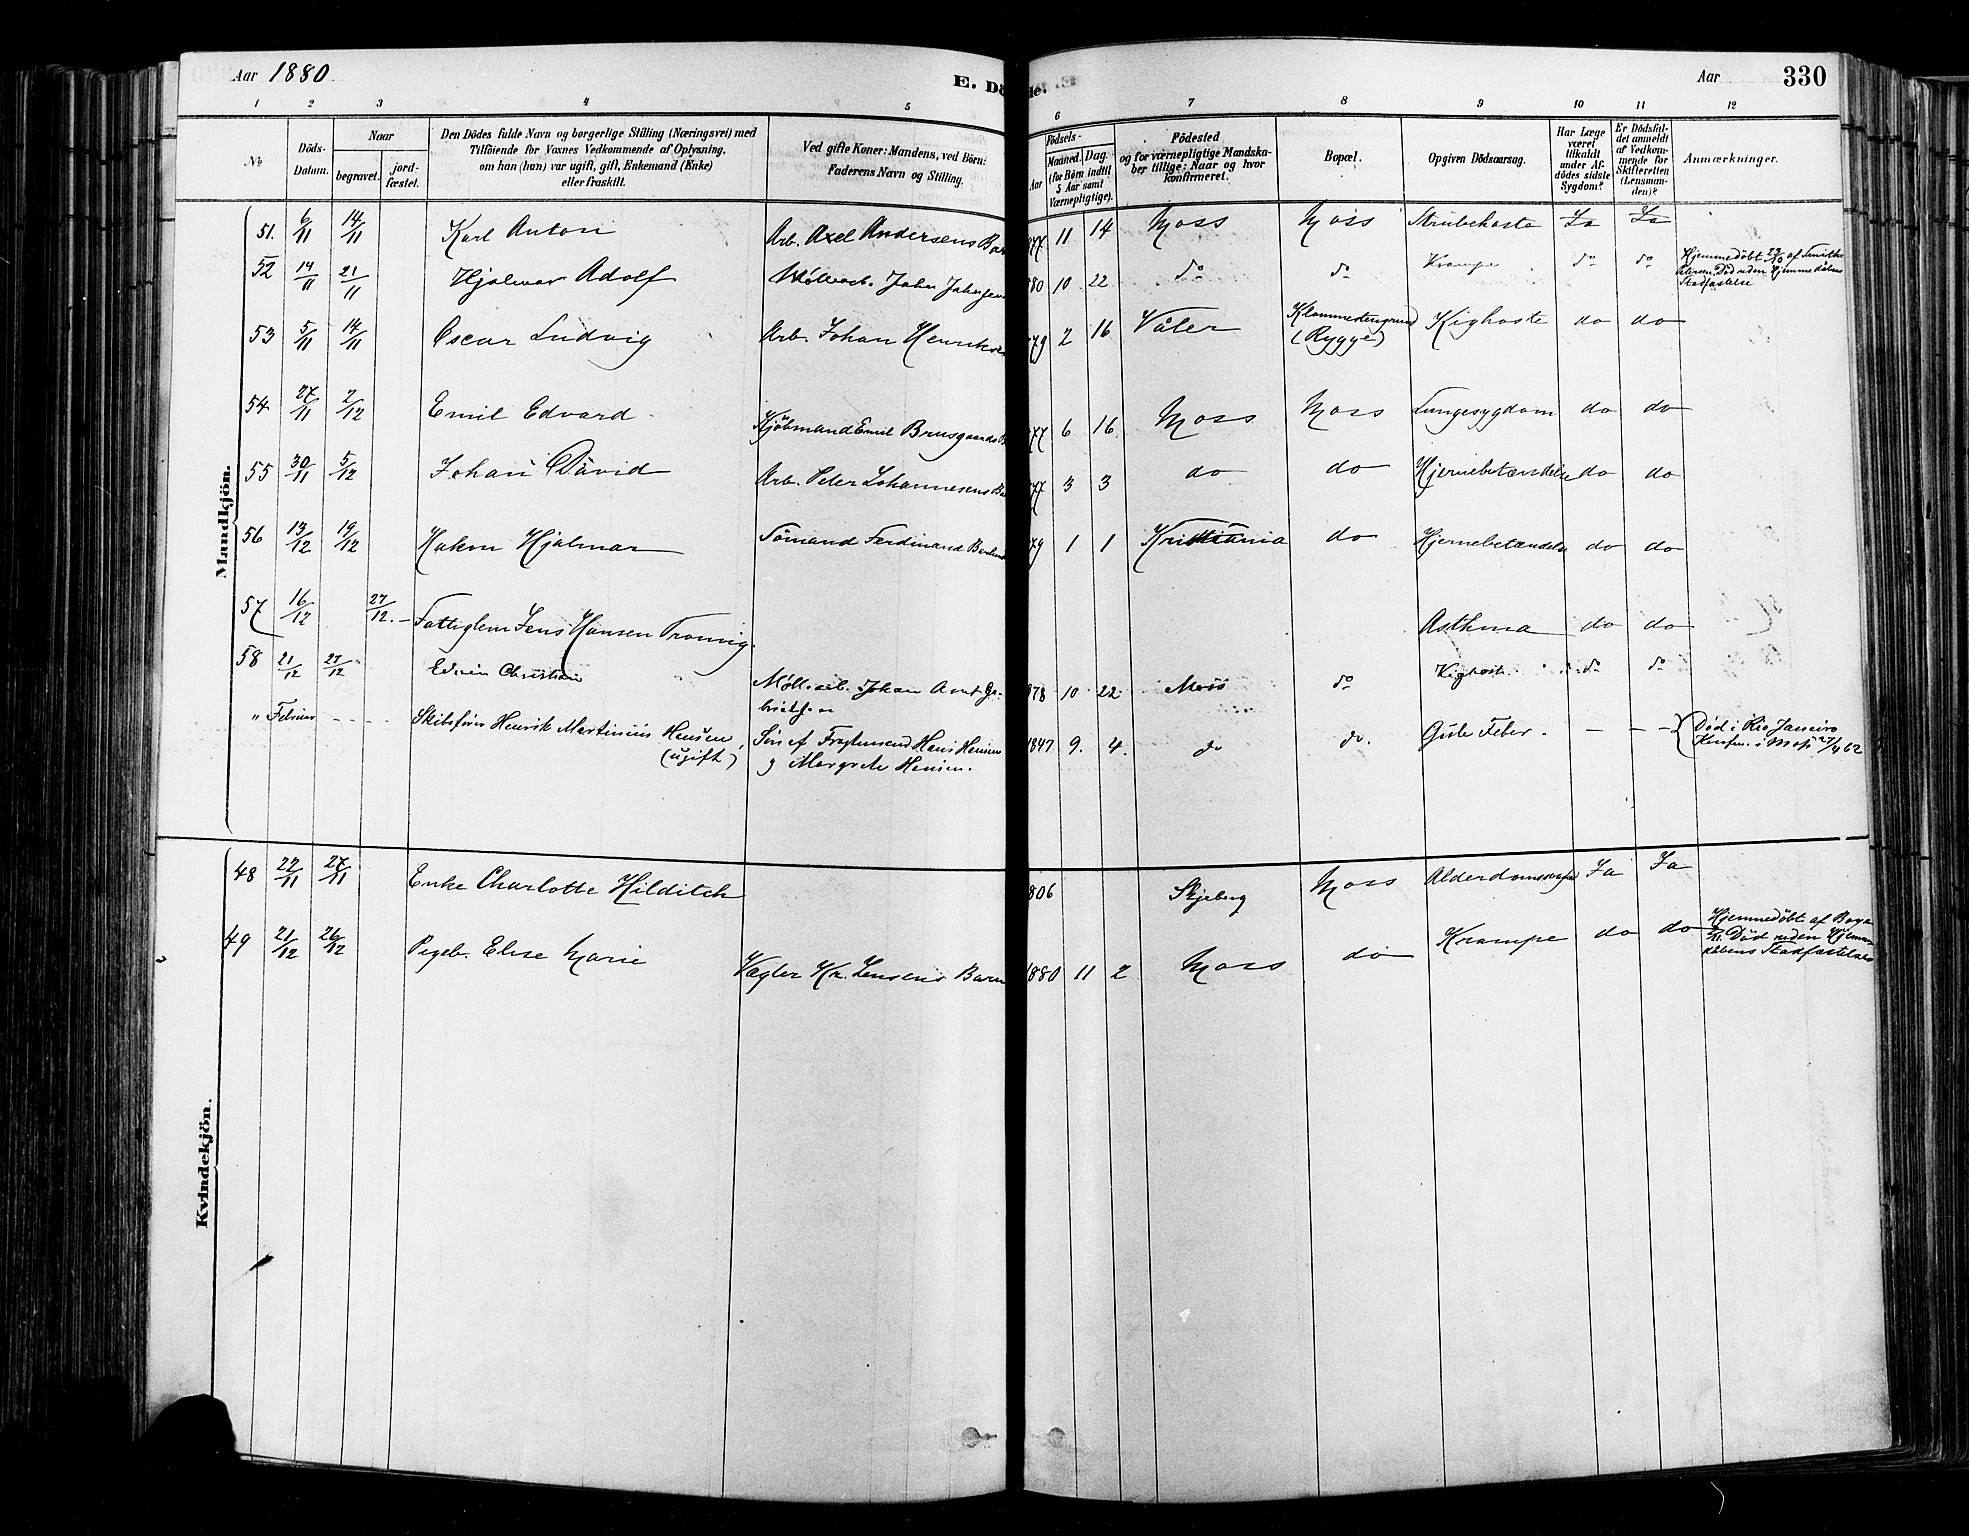 Aar 1880.
E. Dö
de.
Aar
330
1 2 3 4 5 6 7 8 9 10 11 12
No
Döds-
Datum.
Naar
begravet.
jord-
fæstet.
Den Dödes fulde Navn og borgerlige Stilling (Næringsvei) med
Tilföiende for Voxnes Vedkommende af Oplysning,
om han (hun) var ugift, gift, Enkemand (Enke)
eller fraskilt.
Ved gifte Koner: Mandens, ved Börn:
Faderens Navn og Stilling.
Födsels-
Aar
Maaned.
Dag.
(for Börn indtil
5 Aar samt
Værnepligtige).
Födested
og for værnepligtige Mandska-
ber tillige: Naar og hvor
konfirmeret.
Bopæl.
Opgiven Dödsaarsag.
Har Læge
været
tilkaldt
under Af-
dödes sidste
Sygdom?
Er Dödsfal-
det anmeldt
af Vedkom-
mende for
Skifteretten
(Lensman-
den)?
Anmærkninger.
Mandkjön.
51. 6/11 14/11 Karl Anton Arb. Axel Andersens Bar 877 11 14 Moss Moss Strubehoste Ja Ja
52 14/11 21/11 Hjalmar Adolf Möllearb. Johan Johansen 880 10 22 do do Krampe do do Hjemmedöbt 23/10 af
Död uden Hjemmedåbens
Stadfæstelse
53 5/11 14/11 Oscar Ludvig Arb. Johan Henriksen 79 2 16 Våler (Rygge) Kighoste do do
54 27/11 2/12 Emil Edvard Kjöbmand Emil Brusgaards B 877 6 16 Moss Moss Lungesygdom do do
55 30/11 5/12 Johan David Arb. Peter Johannesens Ba 877 3 3 do do Hjernebetændelse do do
56 13/12 19/12 Hakon Hjalmar Sömand Ferdinand 79 1 1 Kristiania do Hjernebetændelse do do
57 16/12 27/12. Fattiglem Jens Hansen Tronvig. Asthma do do
58 21/12 27/12 Edvin Christian Möllearb. Johan Arnt Ga-
brielsen 878 10 22 Moss do Kighoste do do
" Februar - - - - Skibsförer Henrik Martinius Hansen
(ugift) Sön af Fragtemand Hans Hansen
og Margrete Hansen. 1847 9. 4. do do. Gule Feber. - - - Död i Rio Janeiro
Konfm. i Moss 27/4 62
Kvindekjön.
48 22/11 27/11 Enke Charlotte Hilditch 806 Skjeberg Moss Alderdomssvaghed Ja Ja
49 21/12 26/12 Pigeb. Elise Marie Vægter Kr. Jensens Barn 1880 11 2 Moss do Krampe do do Hjemmedöbt af
Död uden Hjemme
dåbens Stadfæstelse